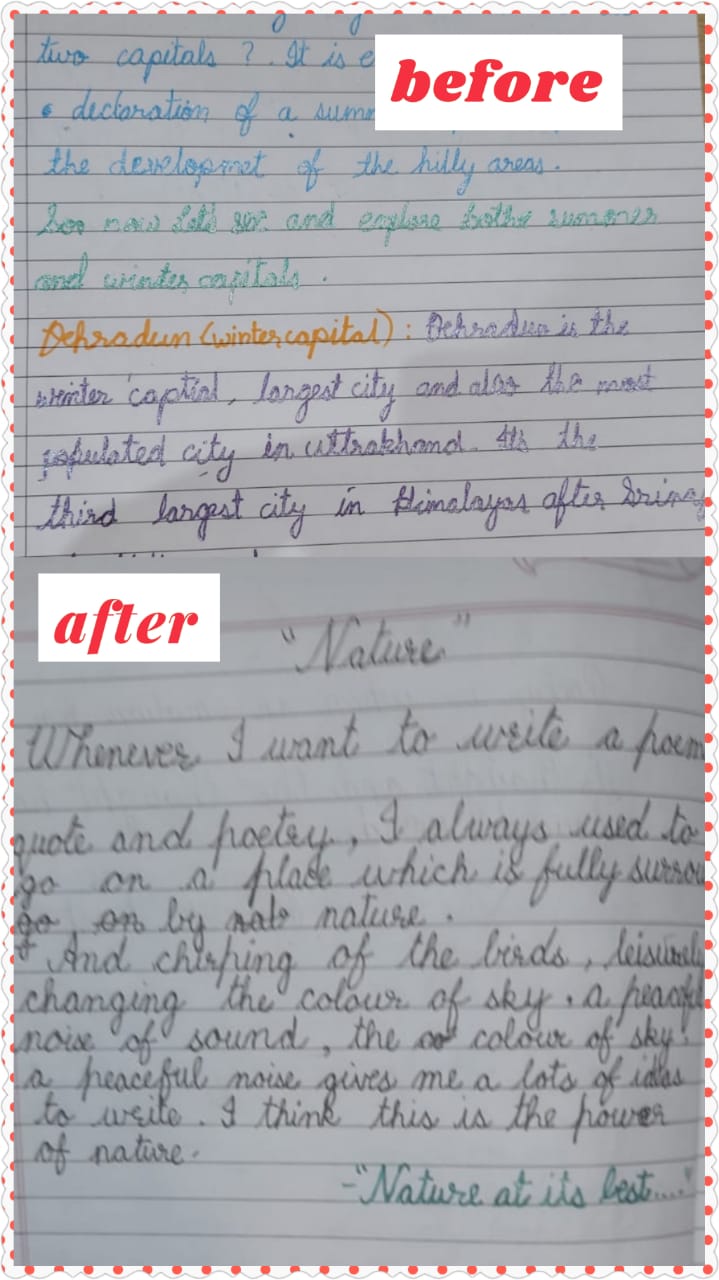 two capitals ? . It is e
before
declaration of a summ
the developmet of the hilly areas .
Soo now let's see and explore bothe summer
and winter capitals .
Dehradun (winter capital) : Dehradun is the
winter captial , largest city and also the most
populated city in uttrakhand. It's the
third largest city in Himalayas after Srinag
after
"Nature"
Whenever I want to write a poem
quote and poetry , I always used to
go on a place which is fully surrou
go on by nature .
And chirping of the birds , leisurely
changing the colour of sky . a peaceful
noise of sound , the colour of sky .
a peaceful noise gives me a lots of ideas
to write . I think this is the power
of nature .
-"Nature at its best...."